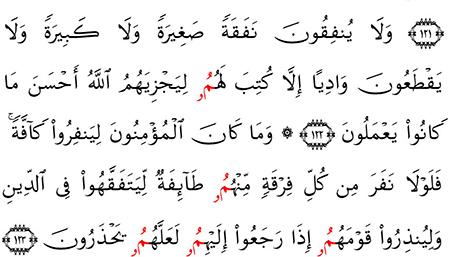 ﴿١٢١﴾ وَلَا يُنفِقُونَ نَفَقَةً صَغِيرَةً وَلَا كَبِيرَةً وَلَا
يَقْطَعُونَ وَادِيًا إِلَّا كُتِبَ لَهُمُۥ لِيَجْزِيَهُمُ اللَّهُ أَحْسَنَ مَا
كَانُوا۟ يَعْمَلُونَ ﴿١٢٢﴾ ۞ وَمَا كَانَ الْمُؤْمِنُونَ لِيَنفِرُوا۟ كَآفَّةًۚ
فَلَوْلَا نَفَرَ مِن كُلِّ فِرْقَةٍ مِّنْهُمُۥ طَآئِفَةٌ لِّيَتَفَقَّهُوا۟ فِي الدِّينِ
وَلِيُنذِرُوا۟ قَوْمَهُمُۥ إِذَا رَجَعُوا۟ إِلَيْهِمُۥ لَعَلَّهُمُۥ يَحْذَرُونَ ﴿١٢٣﴾